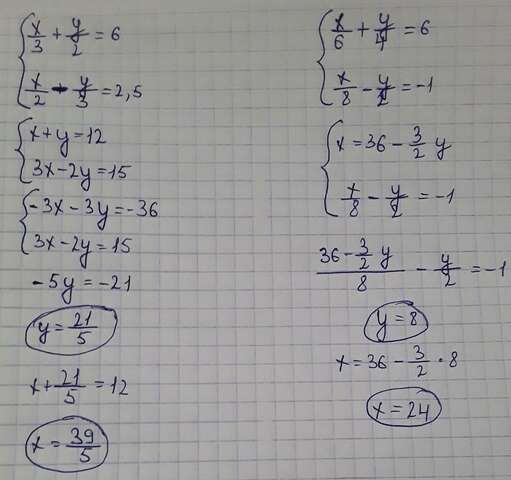 x/3 + y/2 = 6
x/2 - y/3 = 2,5
x + y = 12
3x - 2y = 15
-3x - 3y = -36
3x - 2y = 15
-5y = -21
y = 21/5
x + 21/5 = 12
x = 39/5
x/6 + y/4 = 6
x/8 - y/2 = -1
x = 36 - 3/2 y
x/8 - y/2 = -1
(36 - 3/2 y)/8 - y/2 = -1
y = 8
x = 36 - 3/2 • 8
x = 24